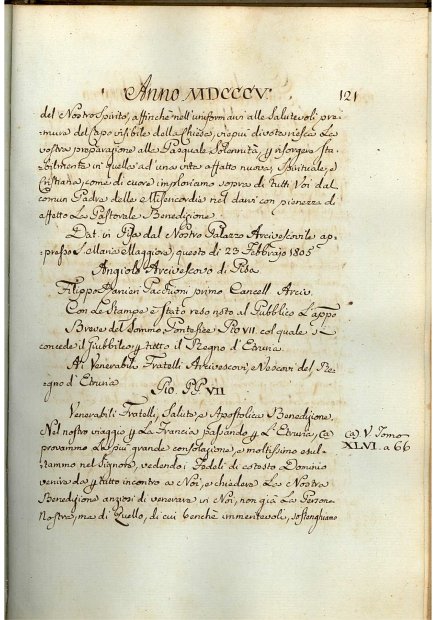 Anno MDCCCV. 121
del Nostro Spirito, affinchè nell'uniformarvi alle Salutevoli pre-
mure del Capo visibile della Chiesa, viepiù divota riesca La
vostra preparazione alle Pasquale Solennità, p risorgere sta-
bilmente in quelle ad'una vita affatto nuova, Spirituale, e
Cristiana, come di cuore imploriamo sopra di tutti Voi dal
comun Padre delle Misericordie nel darvi con pienezza di
affetto La Pastorale Benedizione.
Dat. in Pisa dal Nostro Palazzo Arcivescovile ap-
presso S. Maria Maggiore, questo dì 23 Febbrajo 1805
Angiolo Arcivescovo di Pisa
Filippo Ranieri Pacchioni primo Cancell. Arciv.
Con Le Stampe è stato reso noto al Pubblico L'appo
Breve del Sommo Pontefice Pio VII. col quale si
concede il Jiubbileo p tutto il Regno d'Etruria.
Ai Venerabili Fratelli Arcivescovi, e Vescovi del Re-
gno d'Etruria
Pio. PP. VII
Venerabili Fratelli, Salute, e Apostolica Benedizione.
Nel nostro viaggio p La Francia passando p L'Etruria, (a)
provammo La più grande consolazione, e moltissimo esul-
tammo nel Signore, vedendo i Fedeli di cotesto Dominio
venire da p tutto incontro a Noi, e chiedere La Nostra
Benedizione anziosi di venerare in Noi, non già La Persona
Nostra, ma di Quello, di cui benchè immeritevoli, sostenghiamo
(a) V. Tomo
XLVI. a 66